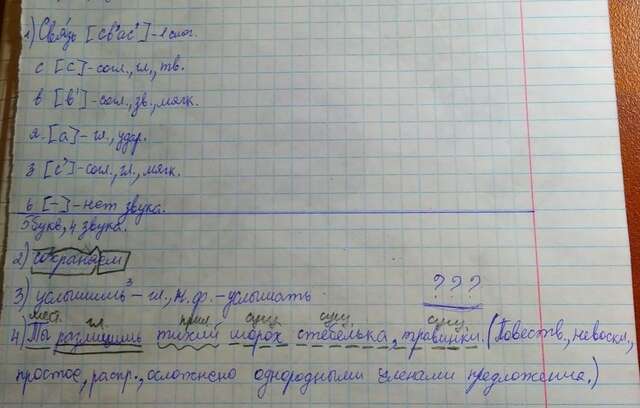 1) Связь [св'ас'] - 1 слог.
с [с] - согл., гл., тв.
в [в'] - согл., зв., мягк.
я [а] - гл., удар.
з [с'] - согл., гл., мягк.
ь [-] - нет звука.
5 букв, 4 звука.
2) сохраняем
3) услышишь³ - гл., н.ф. - услышать
? ? ?
мест. гл. прил. сущ. сущ. сущ.
4) Ты различишь тихий шорох стебелька, травинки. (Повеств., невоскл.,
простое, распр., осложнено однородными членами предложения.)